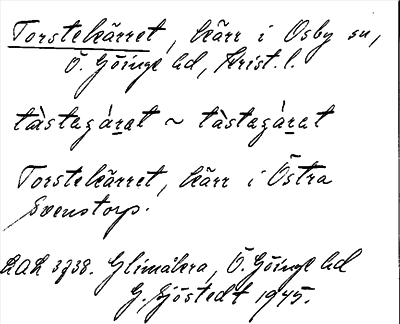 Torstekärret, kärr i Osby sn,
Ö. Göinge hd, Krist. l.
tàstagáṟat ~ tàstagáṟat
Torstekärret, kärr i Östra
Svenstorp.
LAL 3738. Glimåkra, Ö. Göinge hd
G. Sjöstedt 1945.